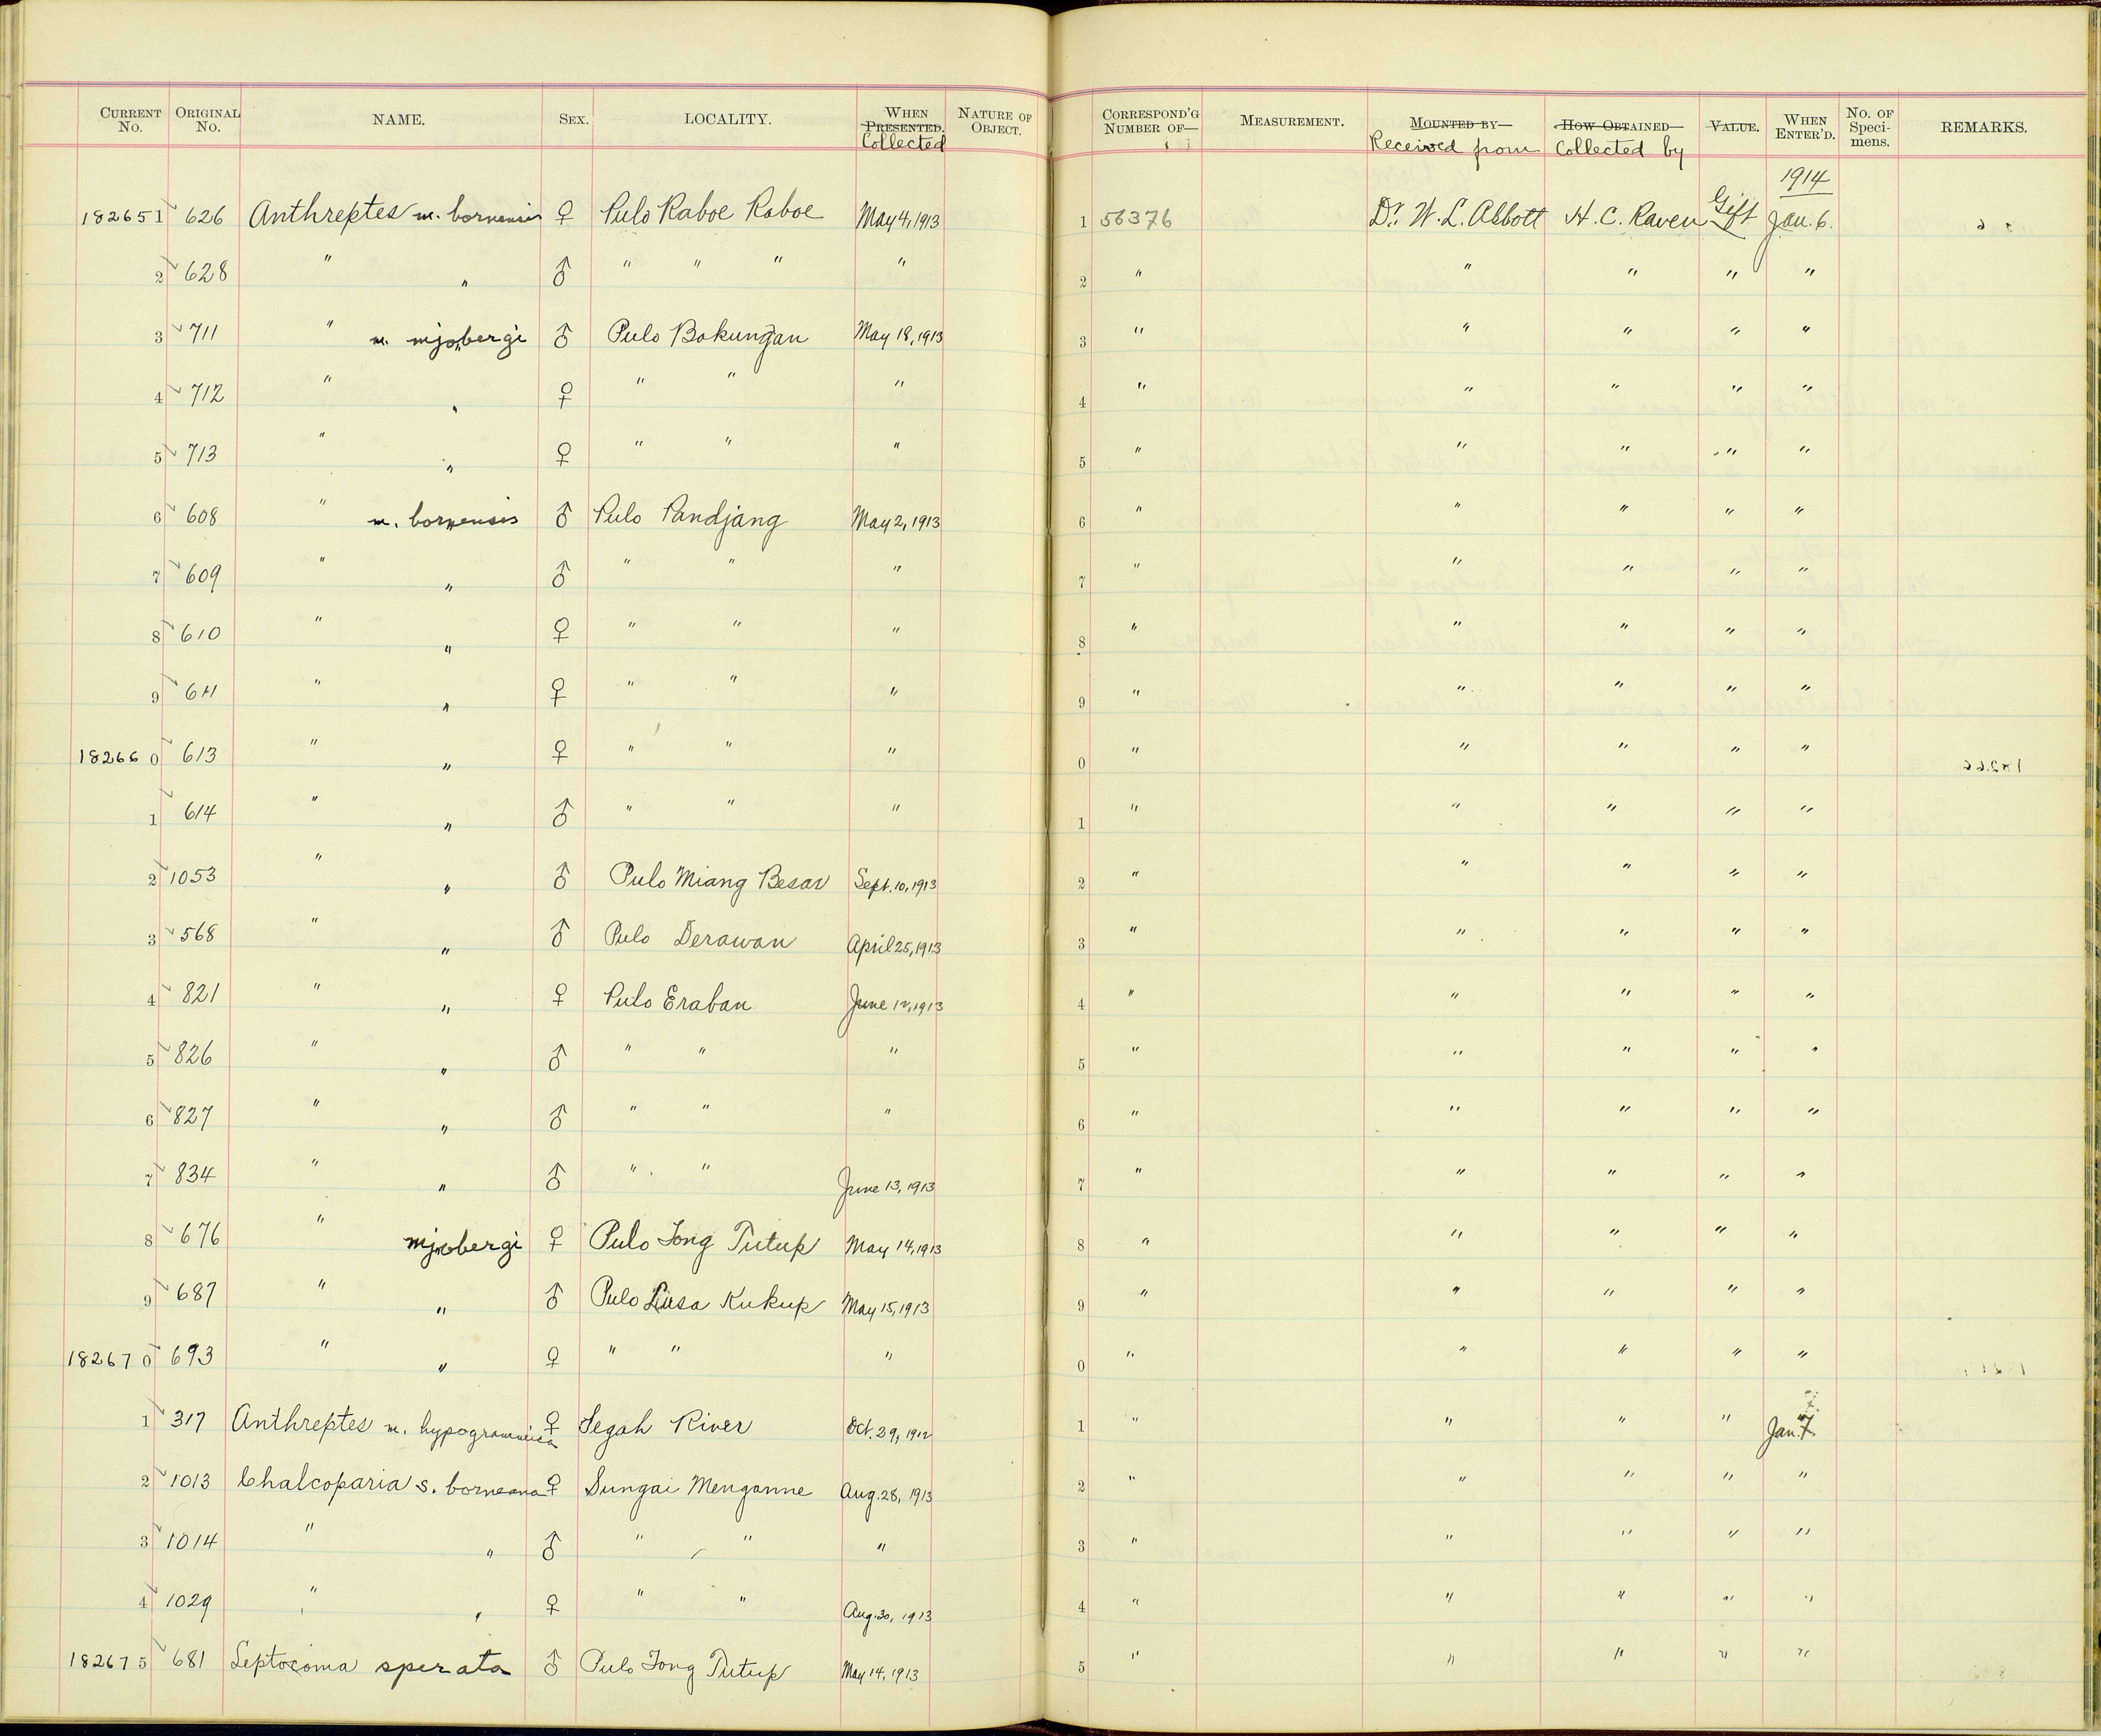 CURRENT No. ORIGINAL No. NAME. SEX. LOCALITY. WHEN PRESENTED. Collected NATURE OF OBJECT. CORRESPOND'G NUMBER OF— MEASUREMENT. MOUNTED BY— Received from HOW OBTAINED— Collected by VALUE. WHEN ENTER'D. No. OF Speci-mens. REMARKS.
1914
182651 626 Anthreptes m. bornensis ♀ Pulo Raboe Raboe May 4, 1913 1 56376 Dr. W. L. Abbott H. C. Raven Gift Jan. 6.
2 628 " " ♂ " " " " 2 " " " " "
3 711 " m. mjobergi ♂ Pulo Bakungan May 18, 1913 3 " " " " "
4 712 " " ♀ " " " 4 " " " " "
5 713 " " ♀ " " " 5 " " " " "
6 608 " m. bornensis ♂ Pulo Pandjang May 2, 1913 6 " " " " "
7 609 " " ♂ " " " 7 " " " " "
8 610 " " ♀ " " " 8 " " " " "
9 611 " " ♀ " " " 9 " " " " "
182660 613 " " ♀ " " " 0 " " " " "
1 614 " " ♂ " " " 1 " " " " "
2 1053 " " ♂ Pulo Miang Besar Sept. 10, 1913 2 " " " " "
3 568 " " ♂ Pulo Derawan April 25, 1913 3 " " " " "
4 821 " " ♀ Pulo Eraban June 12, 1913 4 " " " " "
5 826 " " ♂ " " " 5 " " " " "
6 827 " " ♂ " " " 6 " " " " "
7 834 " " ♂ " " June 13, 1913 7 " " " " "
8 676 " mjobergi ♀ Pulo Tong Tutup May 14, 1913 8 " " " " "
9 687 " " ♂ Pulo Kukup May 15, 1913 9 " " " " "
182670 693 " " ♀ " " " 0 " " " " "
1 317 Anthreptes m. hypogrammica ♀ Segah River Oct. 29, 1912 1 " " " " Jan. 7.
2 1013 Chalcoparia s. borneana ♀ Sungai Menganne Aug. 28, 1913 2 " " " " "
3 1014 " " ♂ " " " 3 " " " " "
4 1029 " " ♀ " " Aug. 30, 1913 4 " " " " "
182675 681 Leptocoma sperata ♂ Pulo Tong Tutup May 14, 1913 5 " " " " "